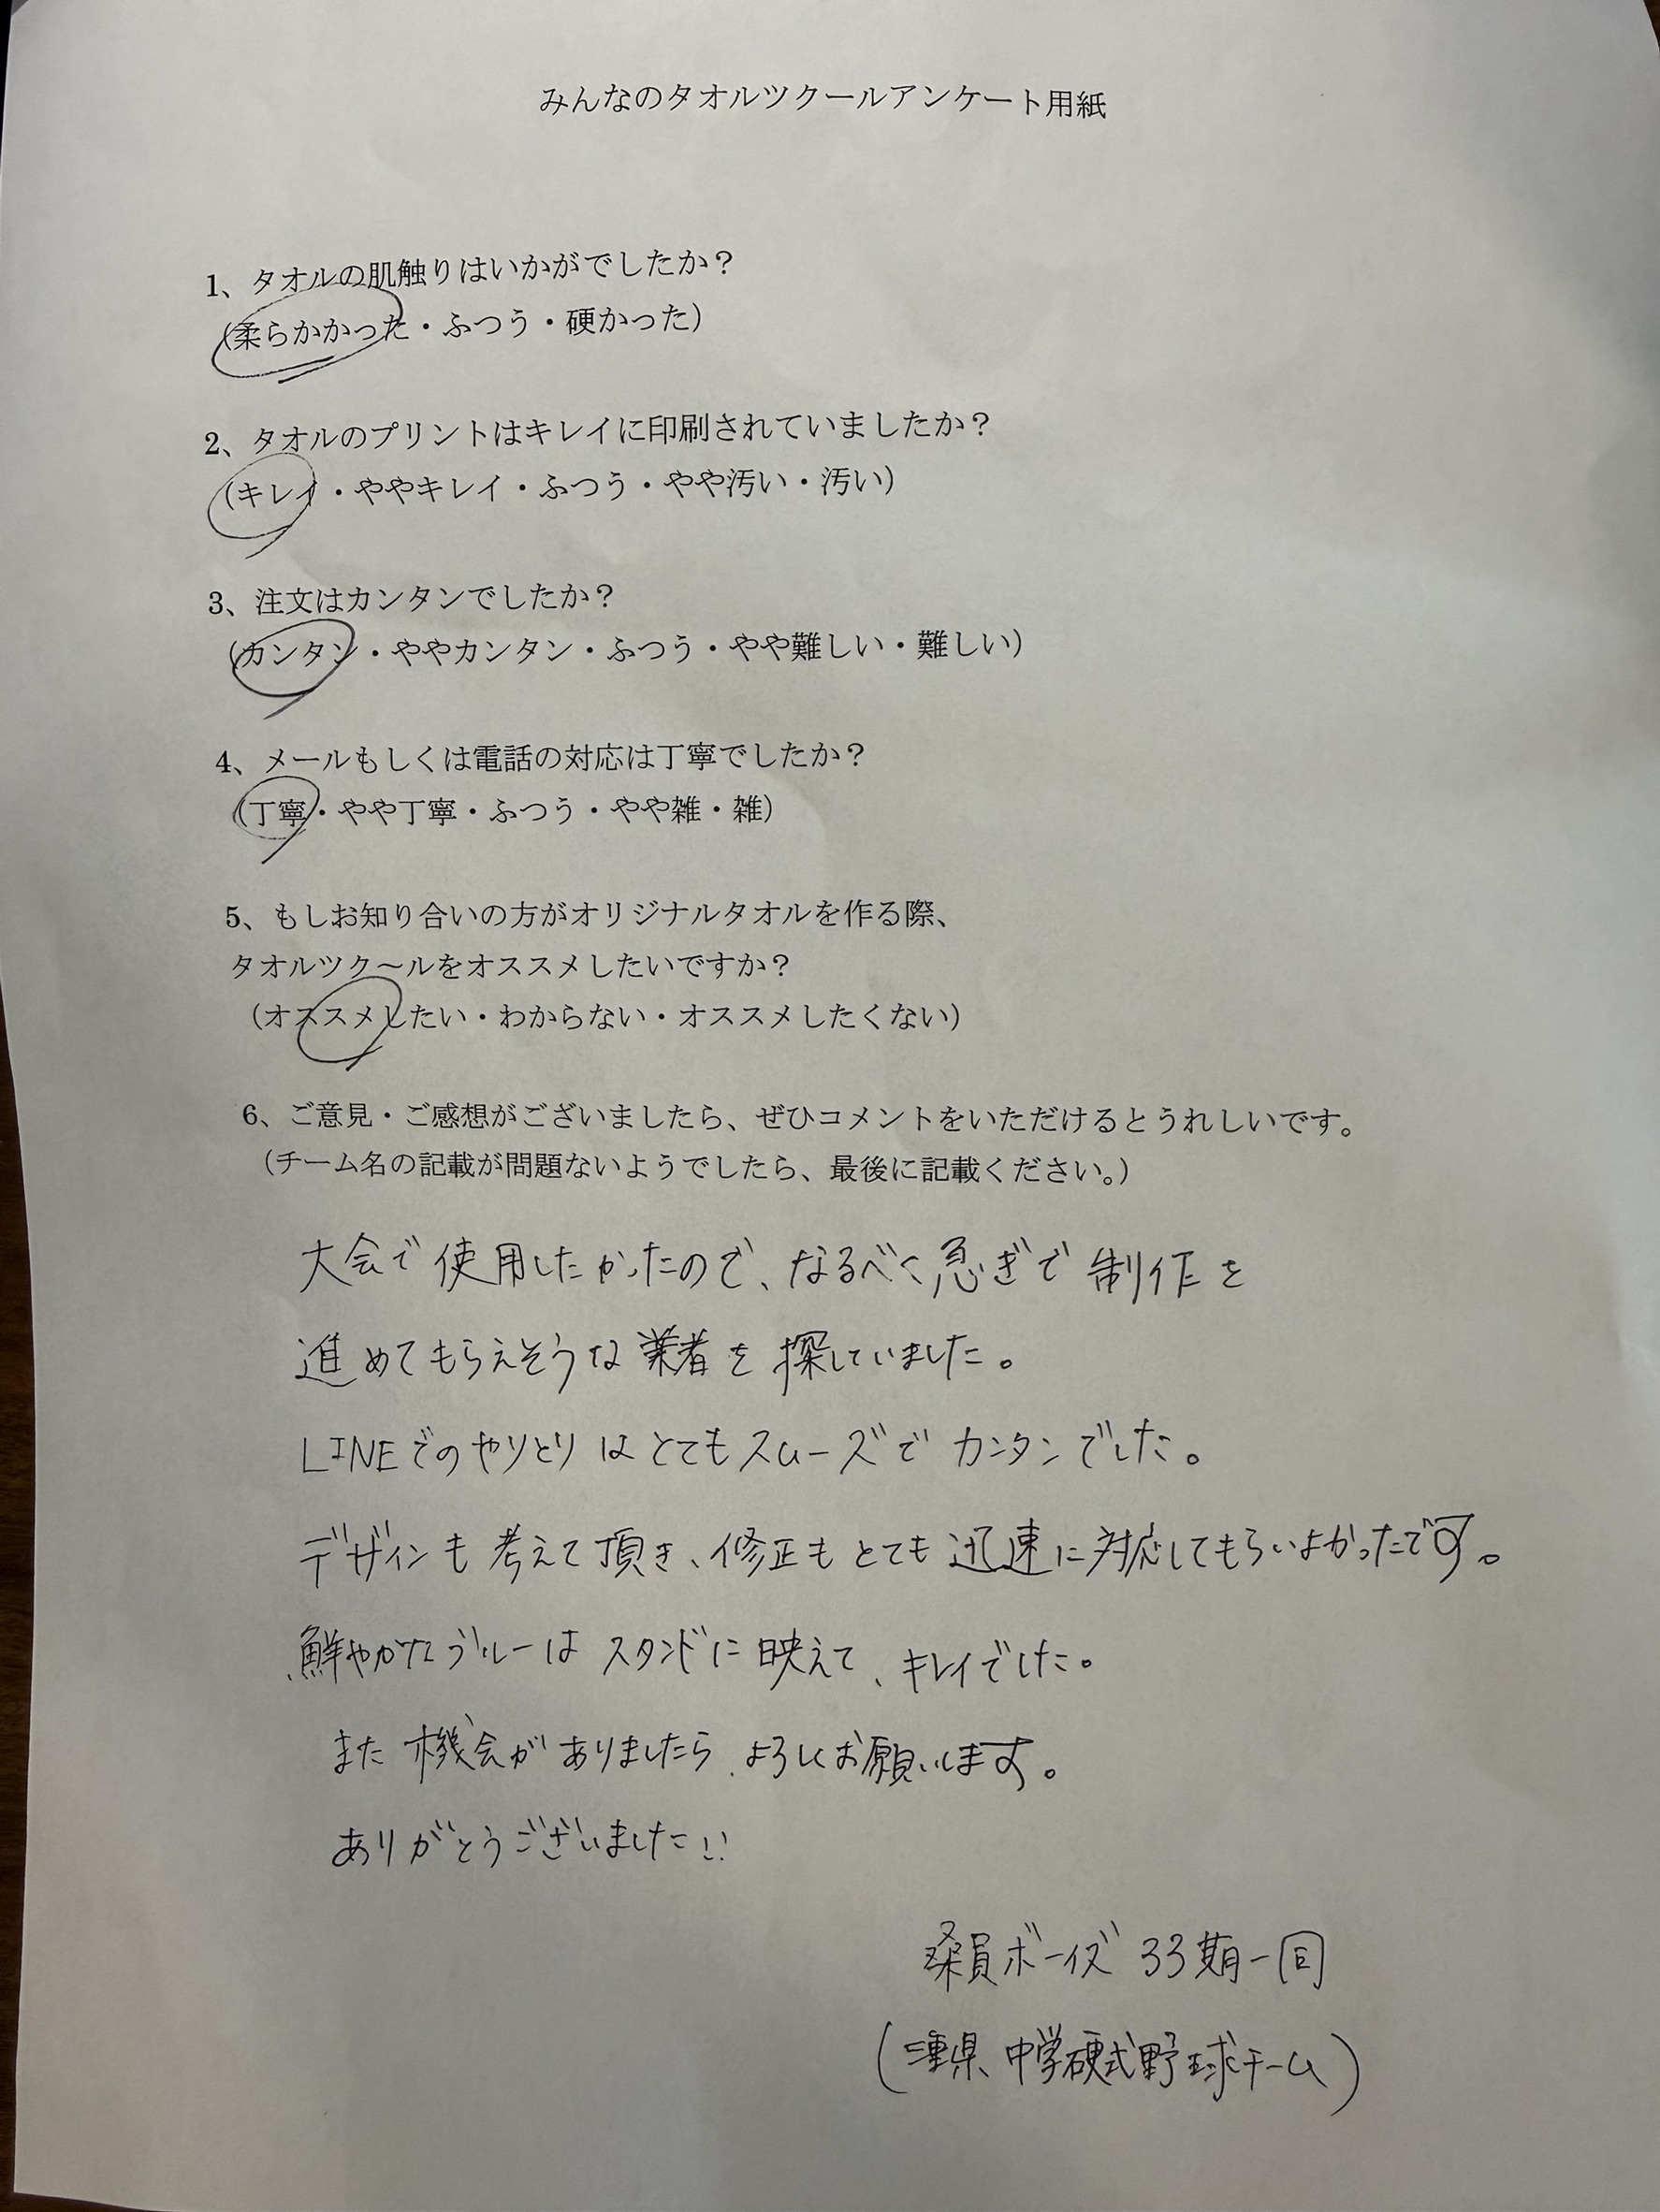 みんなのタオルツクールアンケート用紙
1、タオルの肌触りはいかがでしたか？
（柔らかかった・ふつう・硬かった）
2、タオルのプリントはキレイに印刷されていましたか？
（キレイ・ややキレイ・ふつう・やや汚い・汚い）
3、注文はカンタンでしたか？
（カンタン・ややカンタン・ふつう・やや難しい・難しい）
4、メールもしくは電話の対応は丁寧でしたか？
（丁寧・やや丁寧・ふつう・やや雑・雑）
5、もしお知り合いの方がオリジナルタオルを作る際、
タオルツク～ルをオススメしたいですか？
（オススメしたい・わからない・オススメしたくない）
6、ご意見・ご感想がございましたら、ぜひコメントをいただけるとうれしいです。
（チーム名の記載が問題ないようでしたら、最後に記載ください。）
大会で使用したかったので、なるべく急ぎで制作を
進めてもらえそうな業者を探していました。
LINEでのやりとりはとてもスムーズでカンタンでした。
デザインも考えて頂き、修正もとても迅速に対応してもらいよかったです。
鮮やかなブルーはスタンドに映えて、キレイでした。
また機会がありましたら、よろしくお願いします。
ありがとうございました!!
桑員ボーイズ 33期一同
（三重県 中学硬式野球チーム）